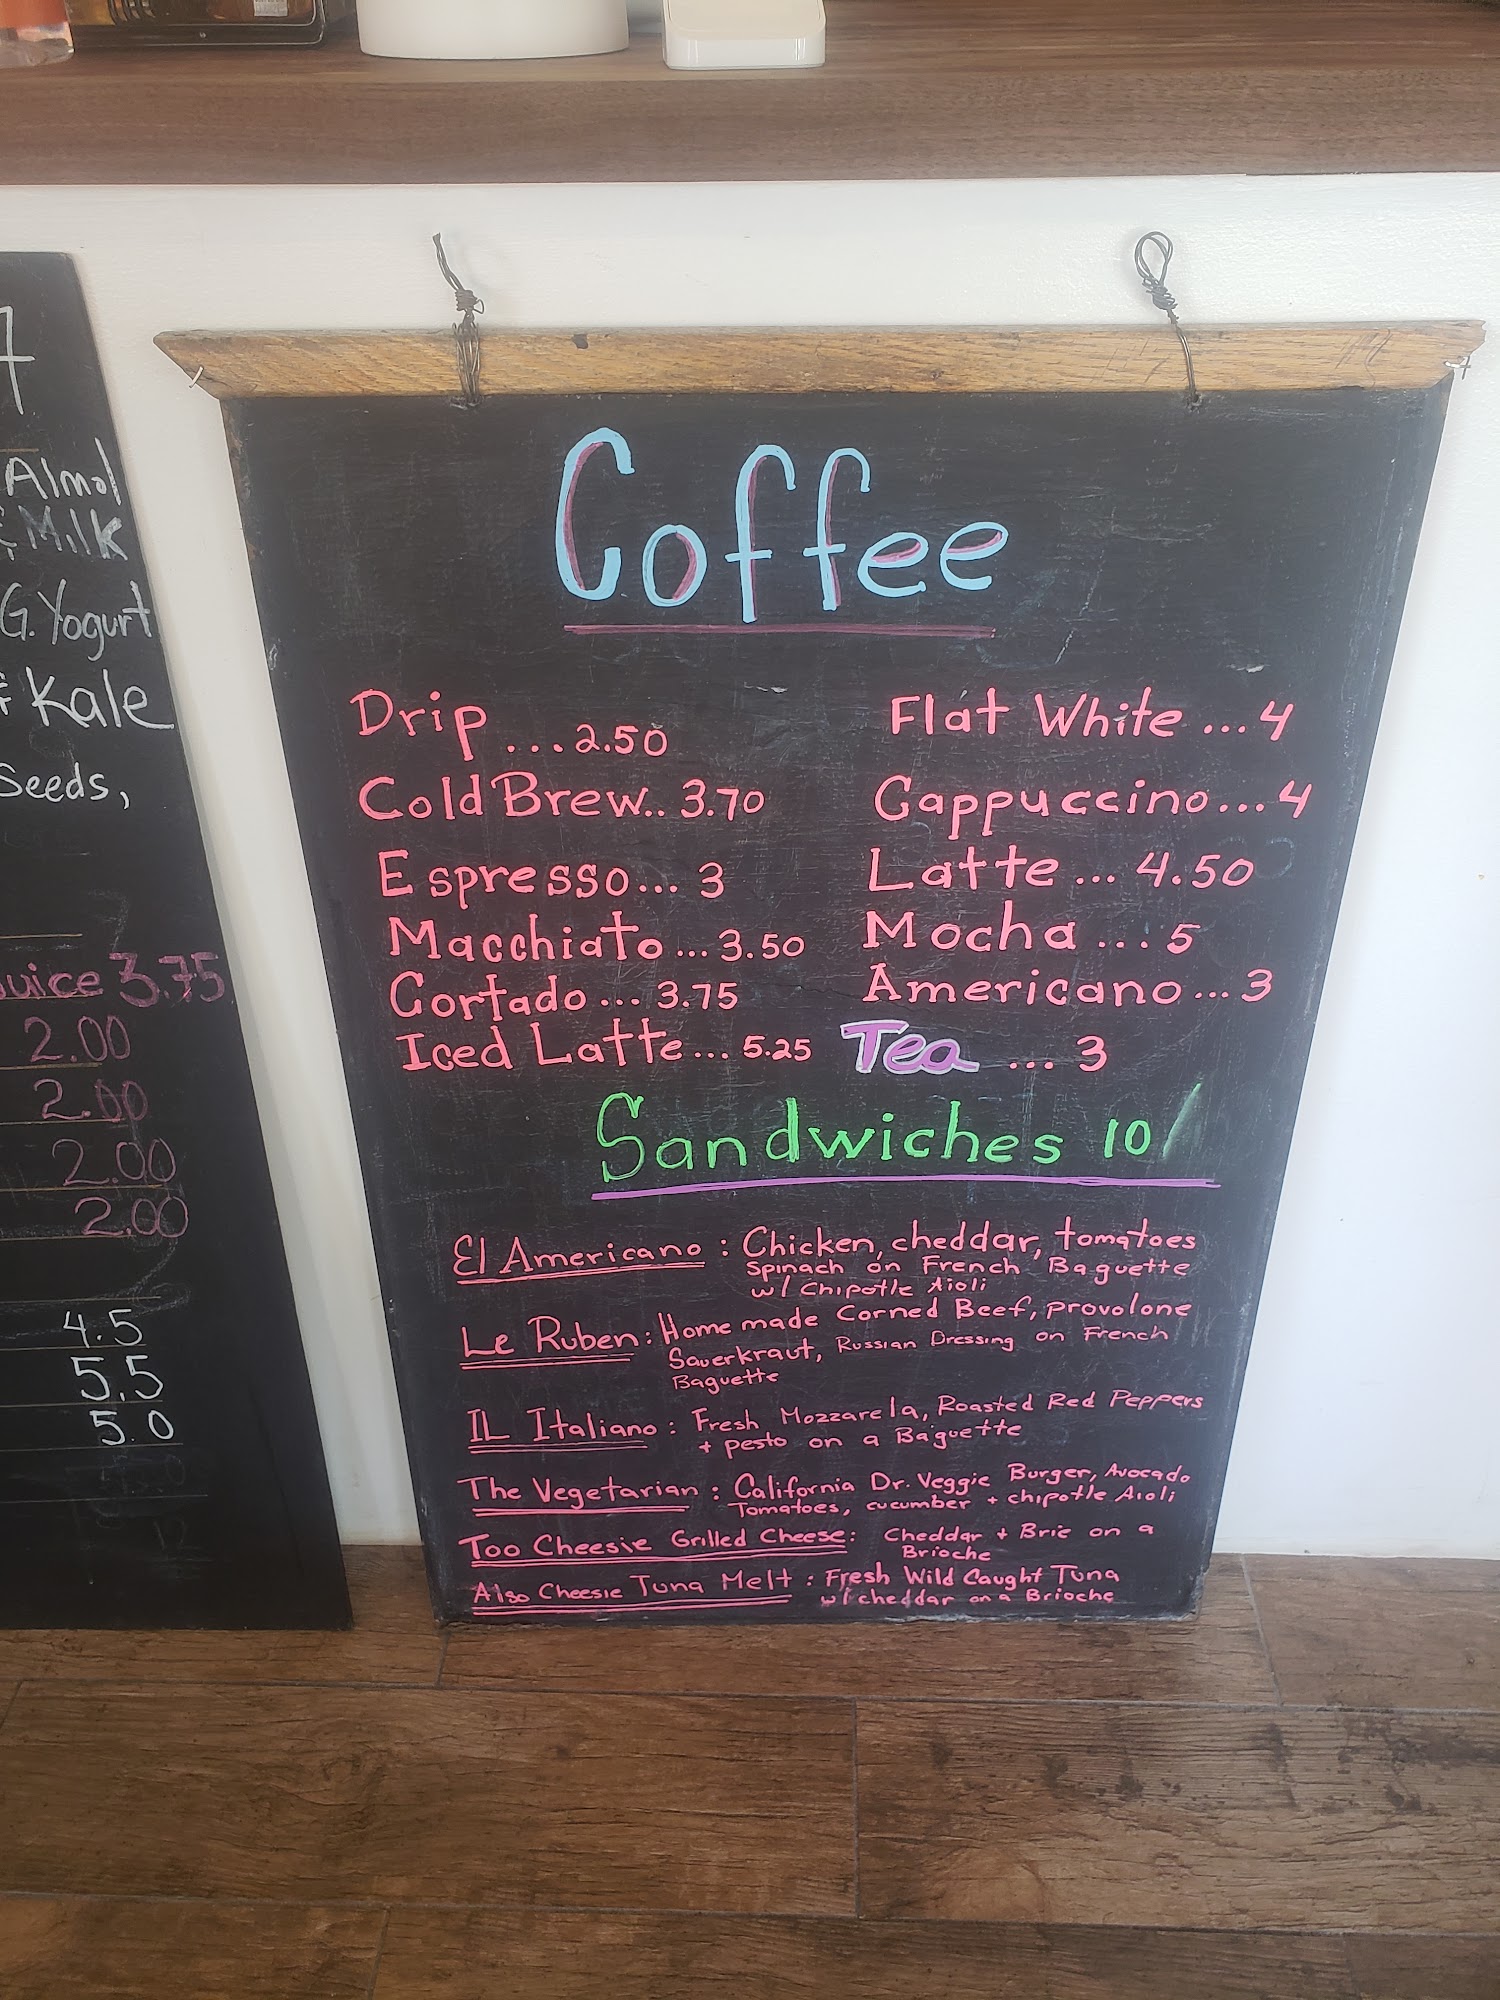 7
Almol
& Milk
G. Yogurt
Kale
Seeds,
Juice 3.75
2.00
2.00
2.00
2.00
4.5
5.5
5.0
12
Coffee
Drip ...2.50
Cold Brew.. 3.70
Espresso... 3
Macchiato ... 3.50
Cortado ... 3.75
Iced Latte ... 5.25
Flat White ... 4
Cappuccino ... 4
Latte ... 4.50
Mocha ... 5
Americano ... 3
Tea ... 3
Sandwiches 10/
El Americano : Chicken, cheddar, tomatoes
Spinach on French Baguette
w/ Chipotle Aioli
Le Ruben : Home made Corned Beef, provolone
Sauerkraut, Russian Dressing on French
Baguette
IL Italiano : Fresh Mozzarela, Roasted Red Peppers
+ pesto on a Baguette
The Vegetarian : California Dr. Veggie Burger, Avocado
Tomatoes, cucumber + chipotle Aioli
Too Cheesie Grilled Cheese : Cheddar + Brie on a
Brioche
Also Cheesie Tuna Melt : Fresh Wild Caught Tuna
w/ cheddar on a Brioche